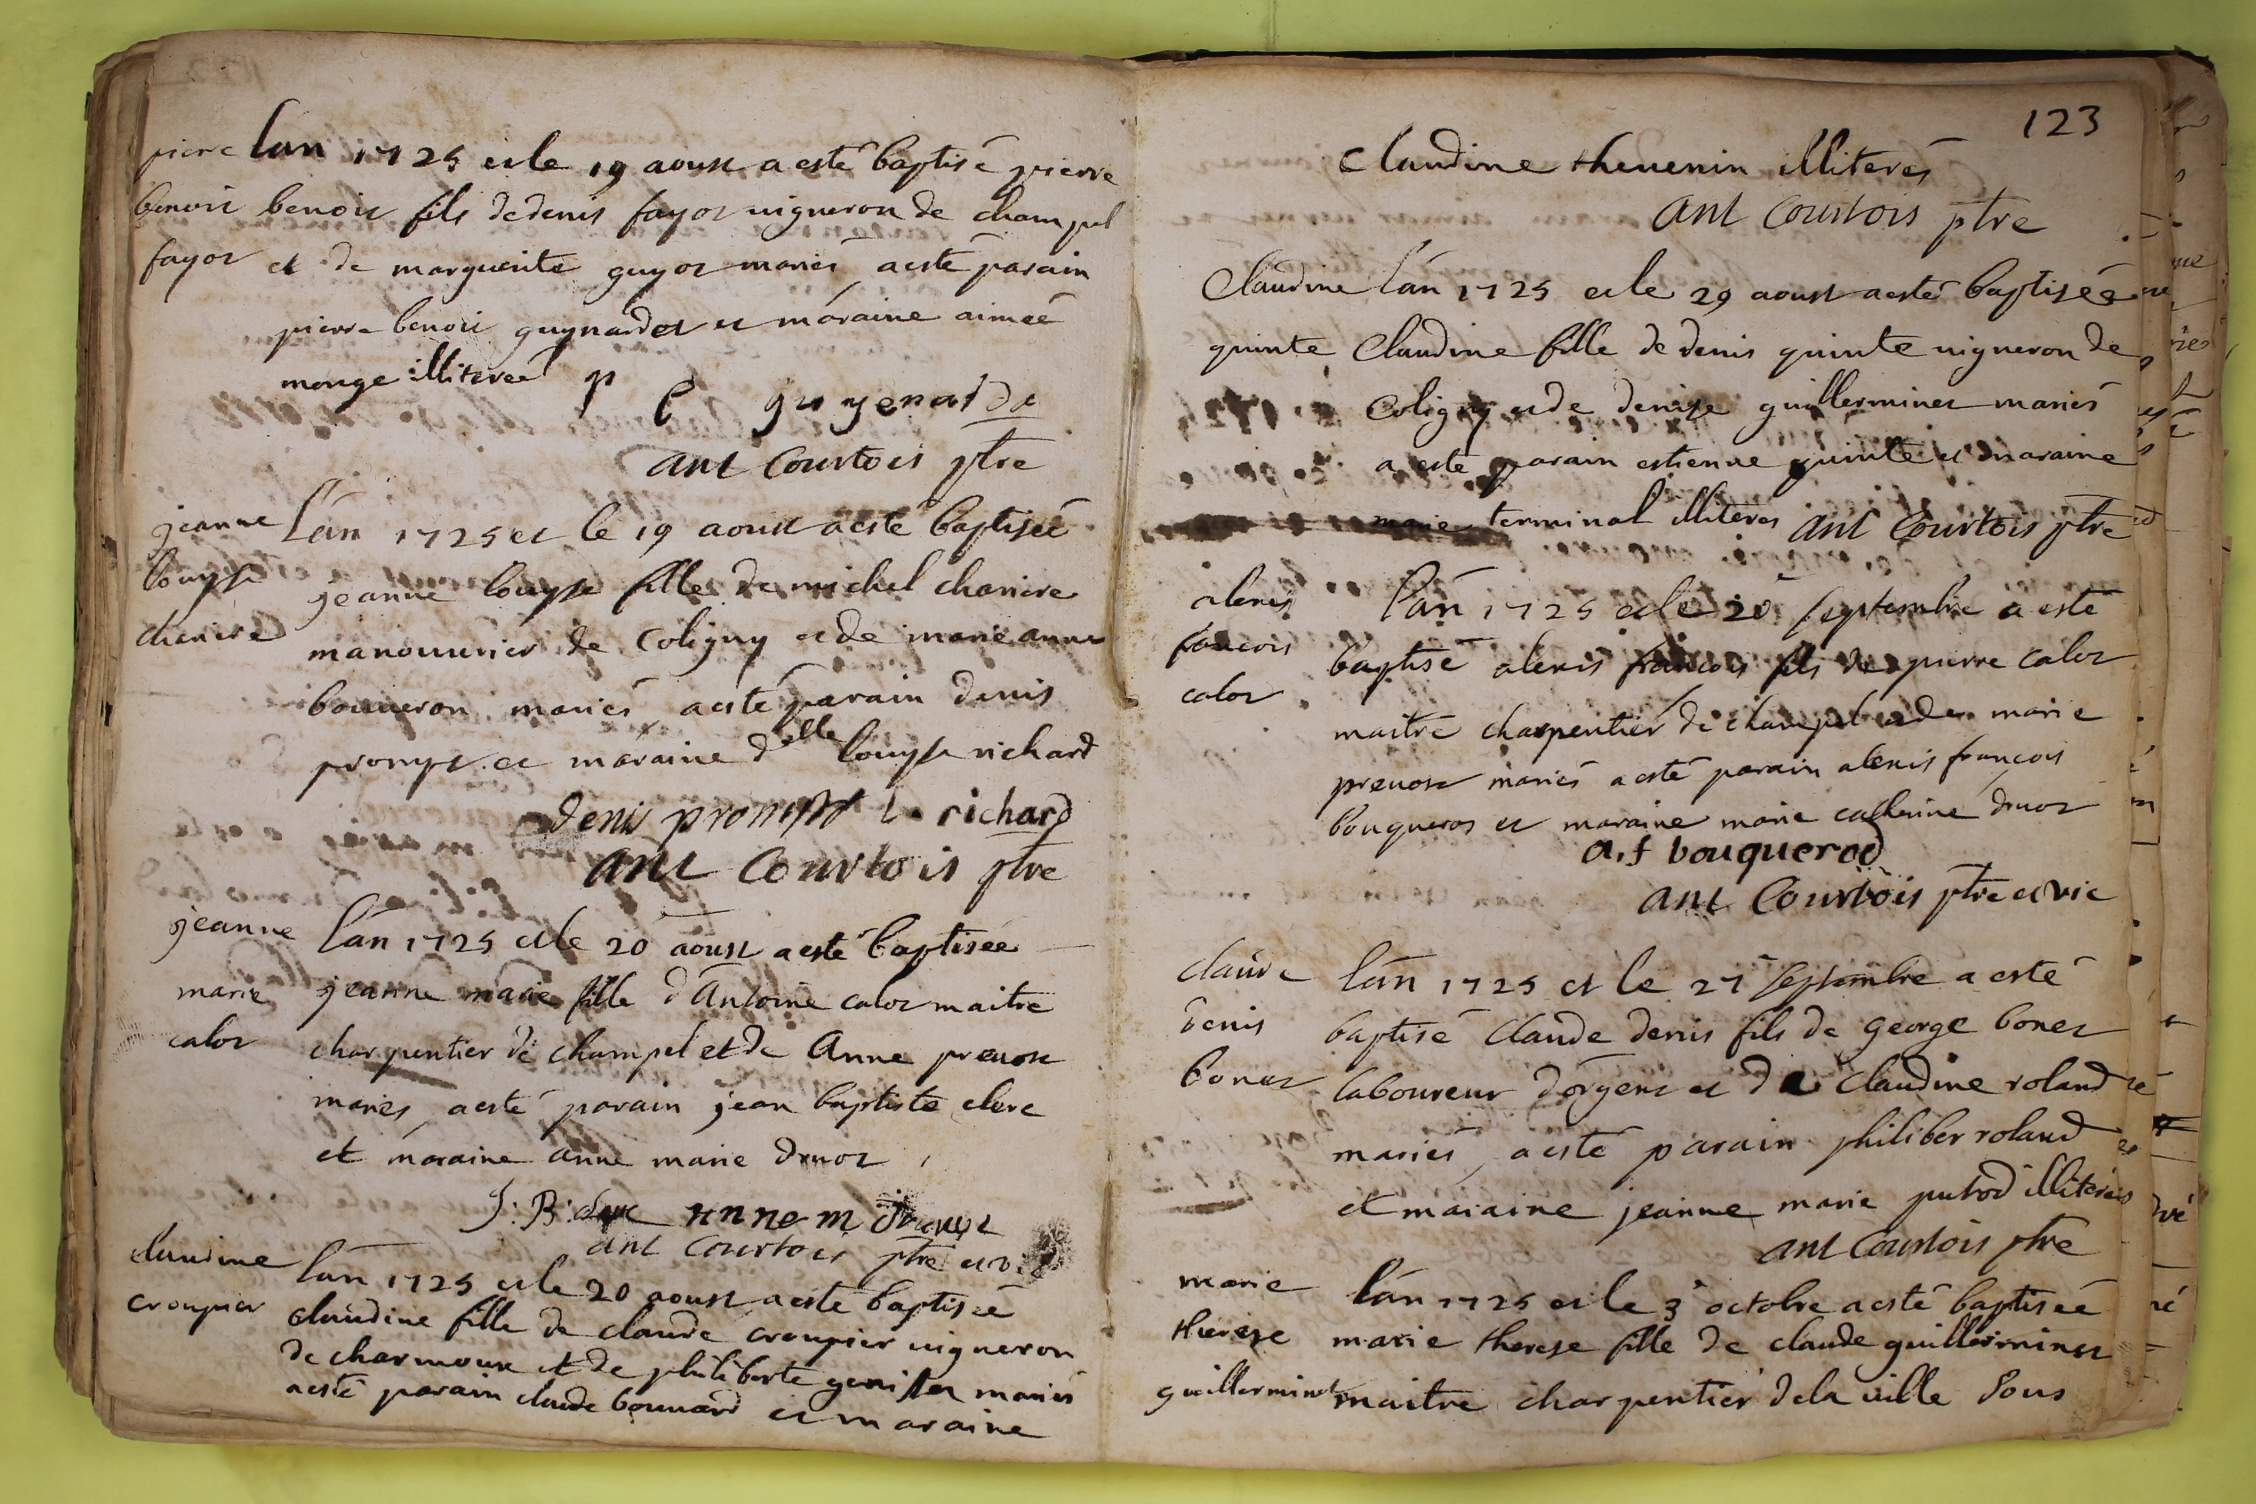 pierre lan 1725 et le 19 aoust a esté baptisé pierre
benoit benoit fils de denis fayot vigneron de champel
fayot et de marguerite guyot mariés a esté parain
pierre benoit guynardet et maraine aimeé
monge illitereé p
p guyenarde
ant Courtois ptre
jeanne l'an 1725 et le 19 aoust a esté baptiseé
louyse jeanne louyse fille de michel chanire
chanire manouurier de Coligny et de marie anne
bouueron mariés a esté parain denis
prompt et maraine delle louyse richard
denis prompt L. richard
ant Courtois ptre
jeanne l'an 1725 et le 20 aoust a esté baptisée
marie jeanne marie fille d'Antoine calot maitre
calot charpentier de champel et de Anne preuost
mariés a esté parain jean baptiste clerc
et maraine anne marie druot
J: B: clerc anne m druot
ant Courtois ptre et vic
claudine l'an 1725 et le 20 aoust a esté baptiseé
croupier claudine fille de claude croupier uigneron
de charmoux et de philiberte mariés
a esté parain claude bouuard et maraine
123
Claudine theuenin illiterés
ant Courtois ptre
Claudine l'an 1725 et le 29 aoust a esté baptiseé
quinte Claudine fille de denis quinte uigneron de
Coligny et de denise guillerminet mariés
a esté parain estienne quinte et maraine
marie terminal illiteres ant Courtois ptre
alexis l'an 1725 et le 20 septembre a esté
francois baptisé alexis francois fils de pierre calot
calot maitre charpentier de champel et de marie
preuost mariés a esté parain alexis françois
bouqueros et maraine marie catherine druot
a.f bouquerod
ant Courtois ptre et vic
claude l'an 1725 et le 27 septembre a esté
denis baptisé Claude denis fils de George bonet
bonet laboureur d'orgent et de Claudine roland
mariés a esté parain philiber roland
et maraine jeanne marie putod illiterés
ant Courtois ptre
marie l'an 1725 et le 3 octobre a esté baptiseé
therese marie therese fille de claude guillerminet
guillerminet maitre charpentier de la uille sous